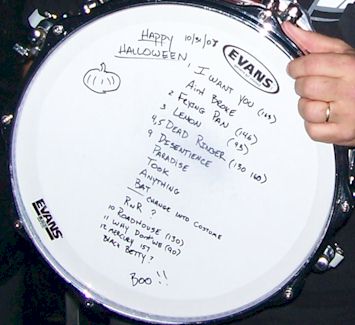 HAPPY 10/31/07
HALLOWEEN,
EVANS
I WANT YOU (163)
AINT BROKE
2 FLYING PAN (146)
3 LEMON (93)
4,5 DEAD RINGER (130 160)
9 DESENTIENCE
PARADISE
TOOK
ANYTHING
BAT CHANGE INTO COSTUME
RNR ?
10 ROADHOUSE (130)
11 WHY DON'T WE (90)
12 MERCURY 157
BLACK BETTY ?
BOO !!
EVANS